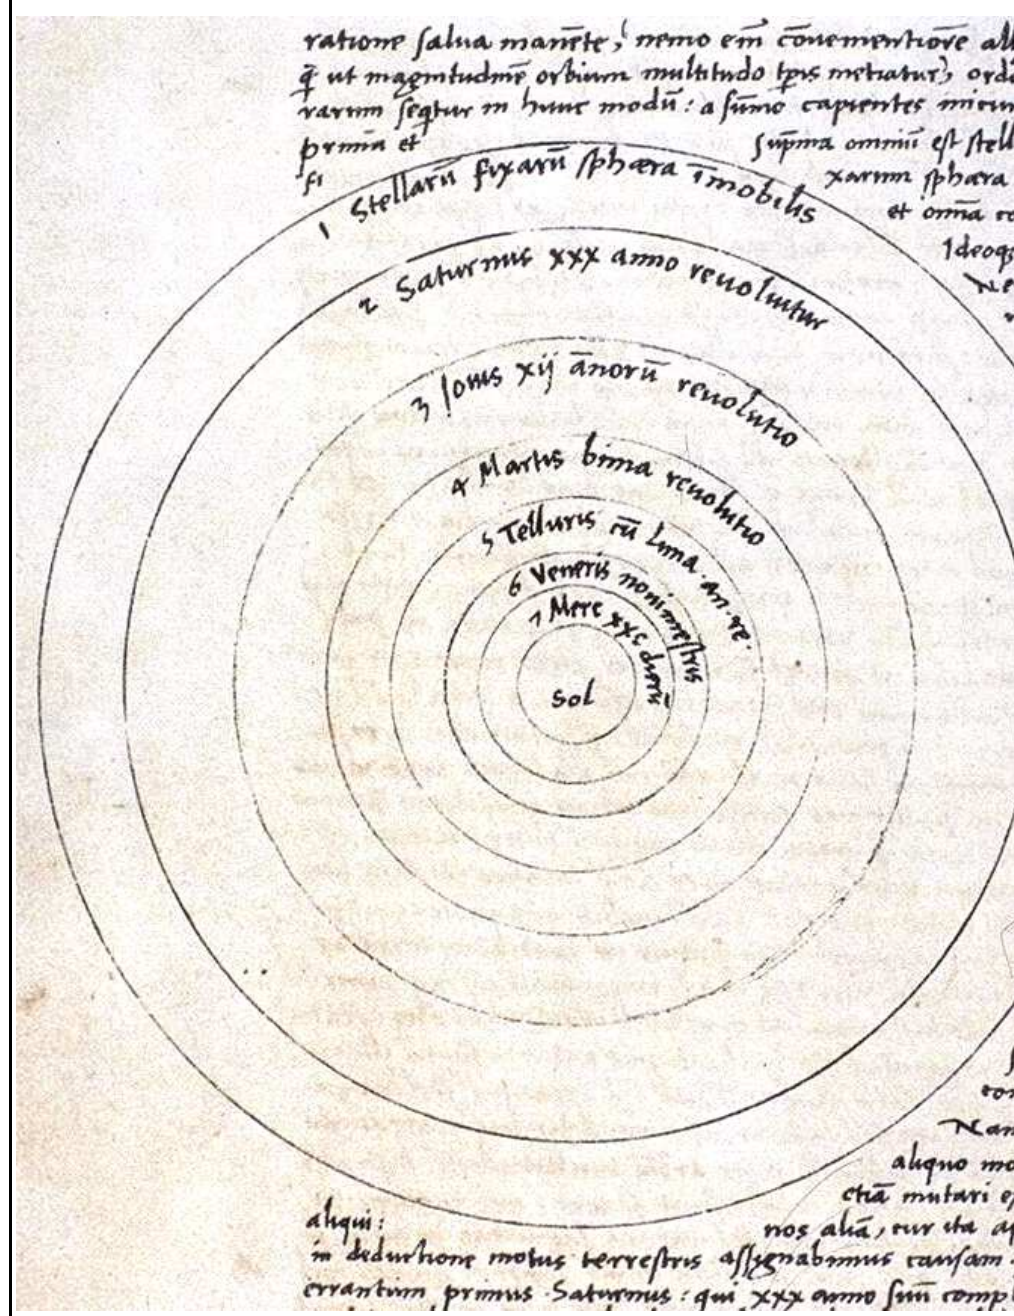 ratione salva manēte, nemo em̄ cōvenientiorē all
q̄ ut magnitudinē orbium multitudo tp̄is metiatur, ordi
rarum seq̄tur in hunc modū: a sūmo capientes iniciu
primā et
sup̄ma omniū est stell
fi
xarum sphæra
et om̄ia co
Ideoq
Ne
1 Stellarū fixarū sphæra īmobilis
2 Saturnus xxx anno revolvitur
3 Jovis xij āñorū revolutio
4 Martis bima revolutio
5 Telluris cū Luna. an. re.
6 Veneris nonimestris
7 Merc xxc dierū
Sol
con
Nam
aliquo mo
etiā mutari
aliqui:
nos aliā, cur ita ap
in deductione motus terrestris assignabimus causam.
errantium primus Saturnus: qui xxx anno suū comp